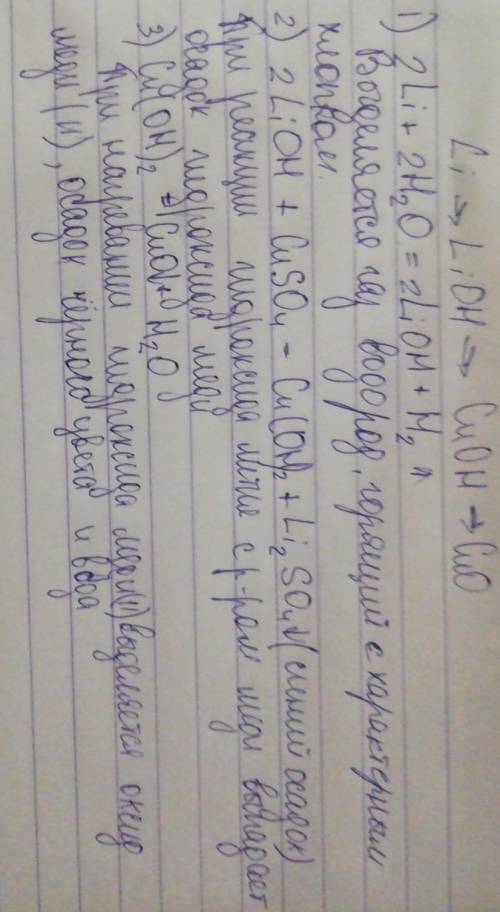 Li → LiOH → CuOH → CuO
1) 2Li + 2H₂O = 2LiOH + H₂ ↑
Выделяется газ водород, горящий с характерным
хлопком.
2) 2LiOH + CuSO₄ = Cu(OH)₂ + Li₂SO₄↓ (синий осадок)
При реакции гидроксида лития с р-ром меди выпадает
осадок гидроксид меди
3) Cu(OH)₂ = CuO + H₂O
При нагревании гидроксида меди(II) выделяется оксид
меди (II), осадок чёрного цвета и вода